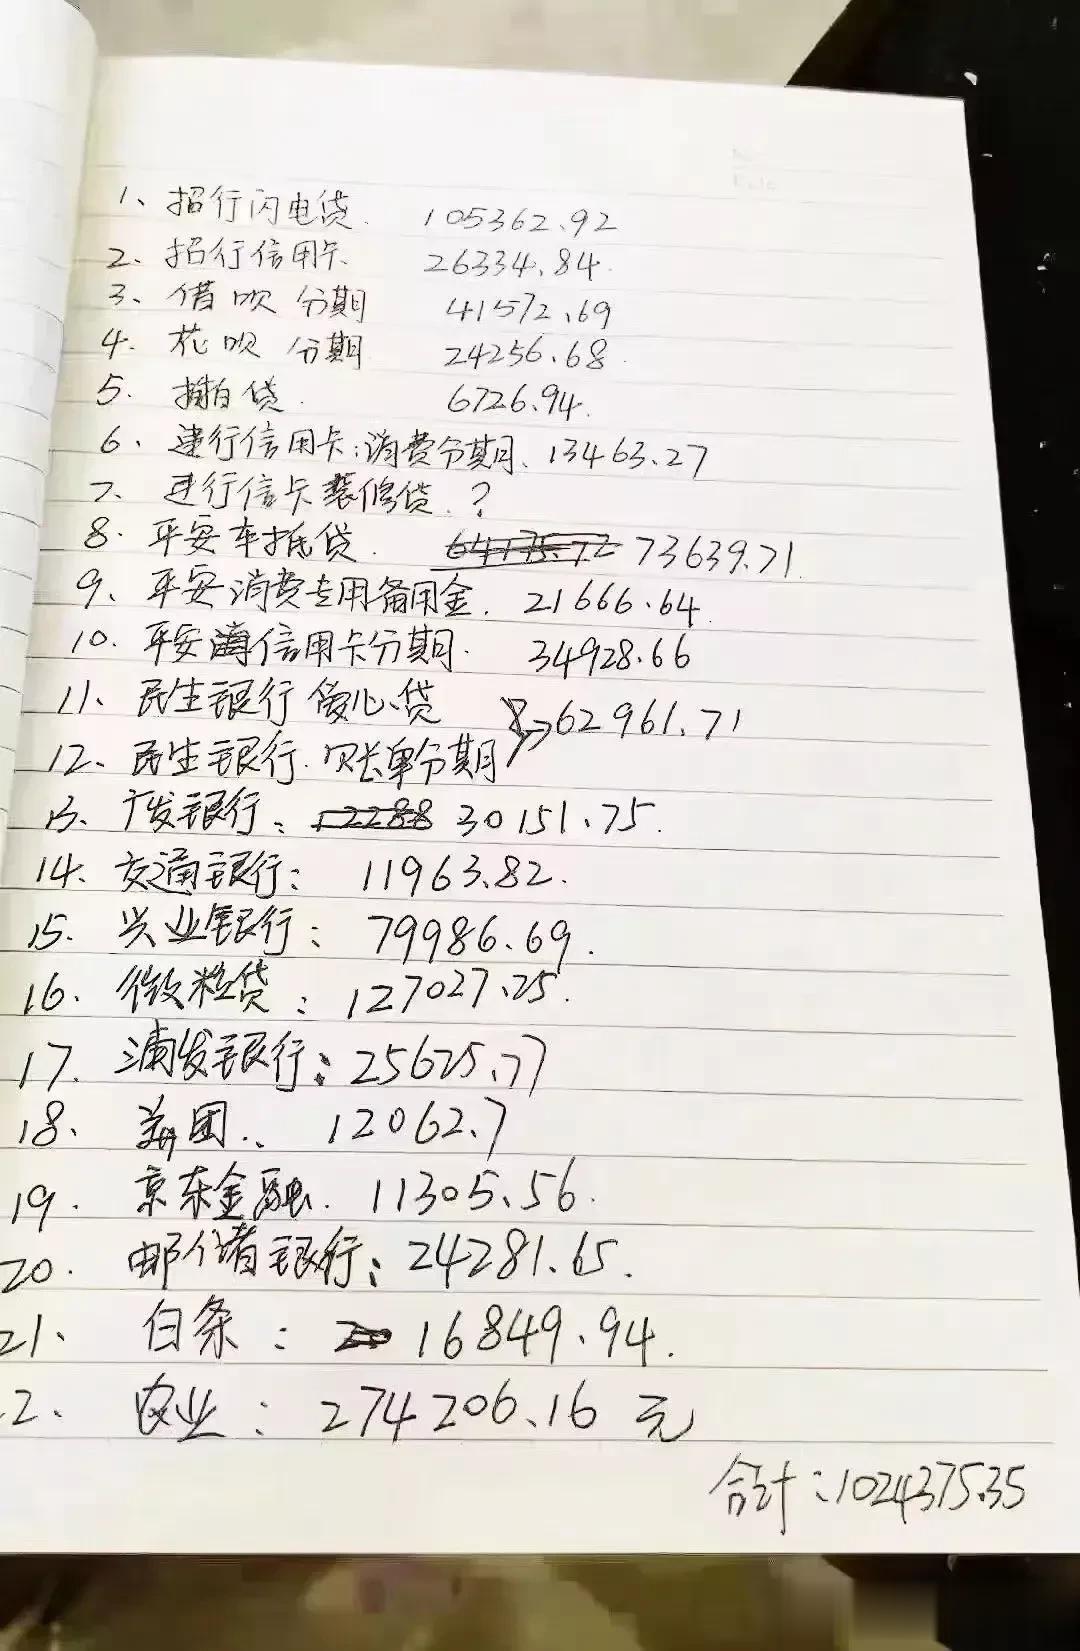 1、招行闪电贷. 105362.92
2、招行信用卡. 26334.84.
3、借呗 分期 41572.69
4、花呗 分期 24256.68.
5. 拍拍贷. 6726.94.
6、建行信用卡:消费分期. 13463.27
7、建行信卡装修贷.?
8.平安车抵贷. 64175.72 73639.71.
9、平安消费专用备用金. 21666.64.
10.平安信用卡分期. 34928.66
11、民生银行 贷 62961.71
12、民生银行.账单分期
13.广发银行: 12288 30151.75.
14.交通银行: 11963.82.
15.兴业银行: 79986.69.
16.微粒贷: 127027.25.
17.浦发银行:25625.77
18、美团.. 12062.7
19.京东金融. 11305.56.
20.邮储银行:24281.65.
21、白条: 16849.94.
2、农业: 274206.16 元
合计:1024375.35